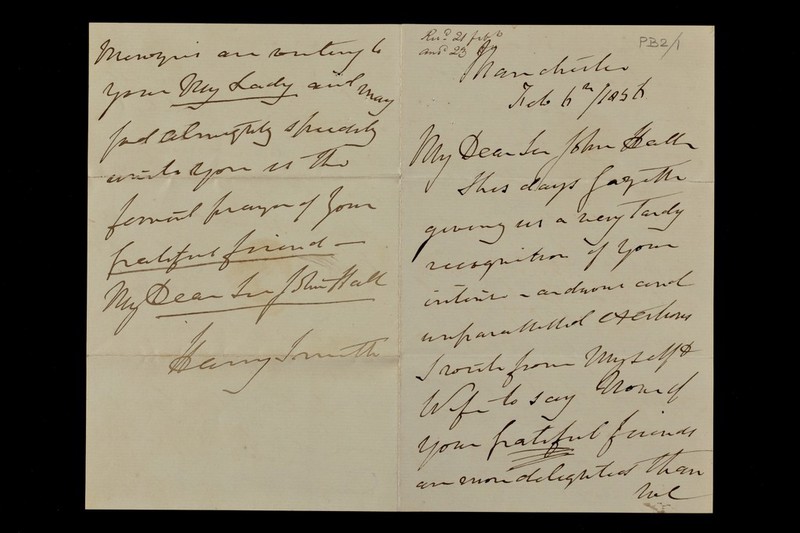 PB2/1
Manchester
Feb 6th/1856
My Dear Sir John Hall
This days Gazette
giving us a very Tardy
recognition of your
intense - arduous and
unparalleled exertions
I write from Myself &
Wife to say None of
your grateful friends
are more delighted than
We
are writing to
your My Lady and may
God Almighty speedily
unite you is the
fervent prayer of Your
grateful friend -
My Dear Sir John Hall
Harry Smith